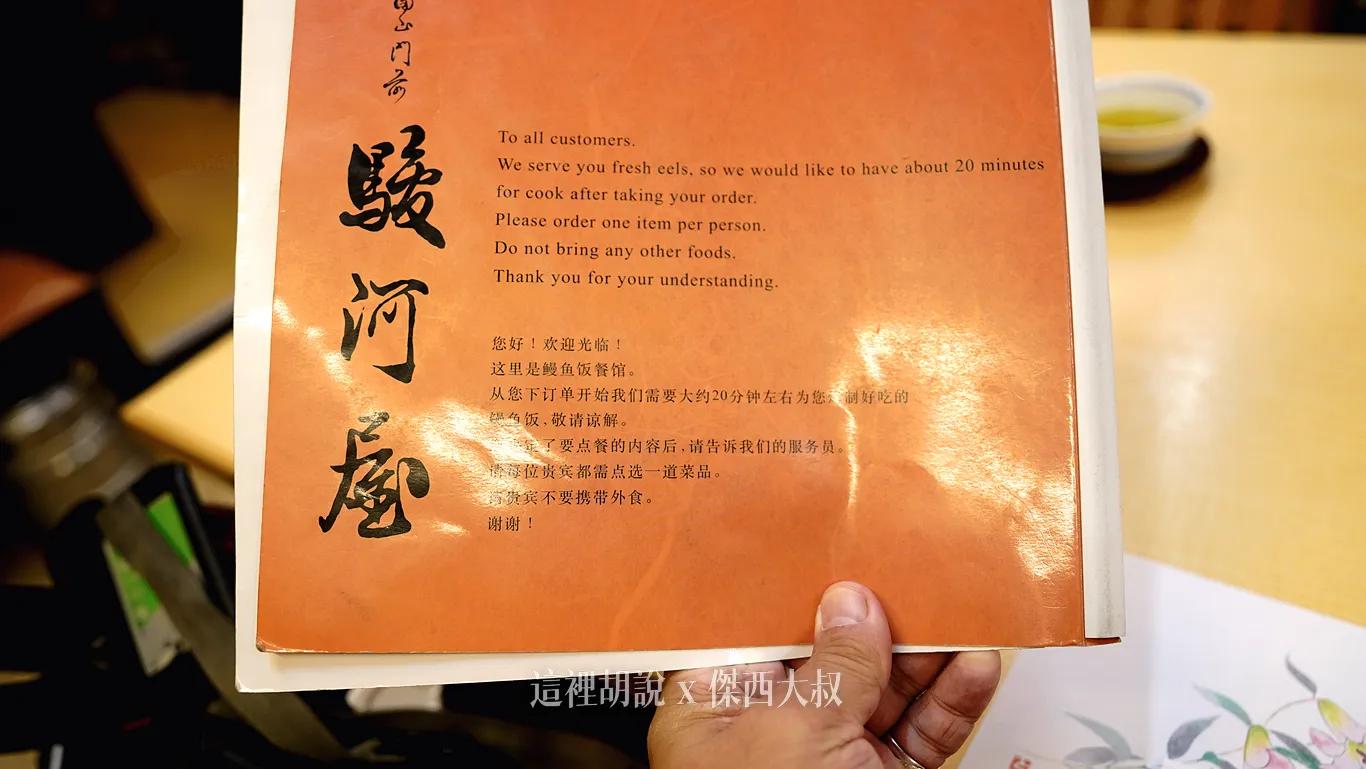 山门前
駿河屋
To all customers.
We serve you fresh eels, so we would like to have about 20 minutes
for cook after taking your order.
Please order one item per person.
Do not bring any other foods.
Thank you for your understanding.
您好！欢迎光临！
这里是鳗鱼饭餐馆。
从您下订单开始我们需要大约20分钟左右为您 制好吃的
鳗鱼饭，敬请谅解。
定了要点餐的内容后，请告诉我们的服务员。
请每位贵宾都需点选一道菜品。
请贵宾不要携带外食。
谢谢！
這裡胡說 x 傑西大叔